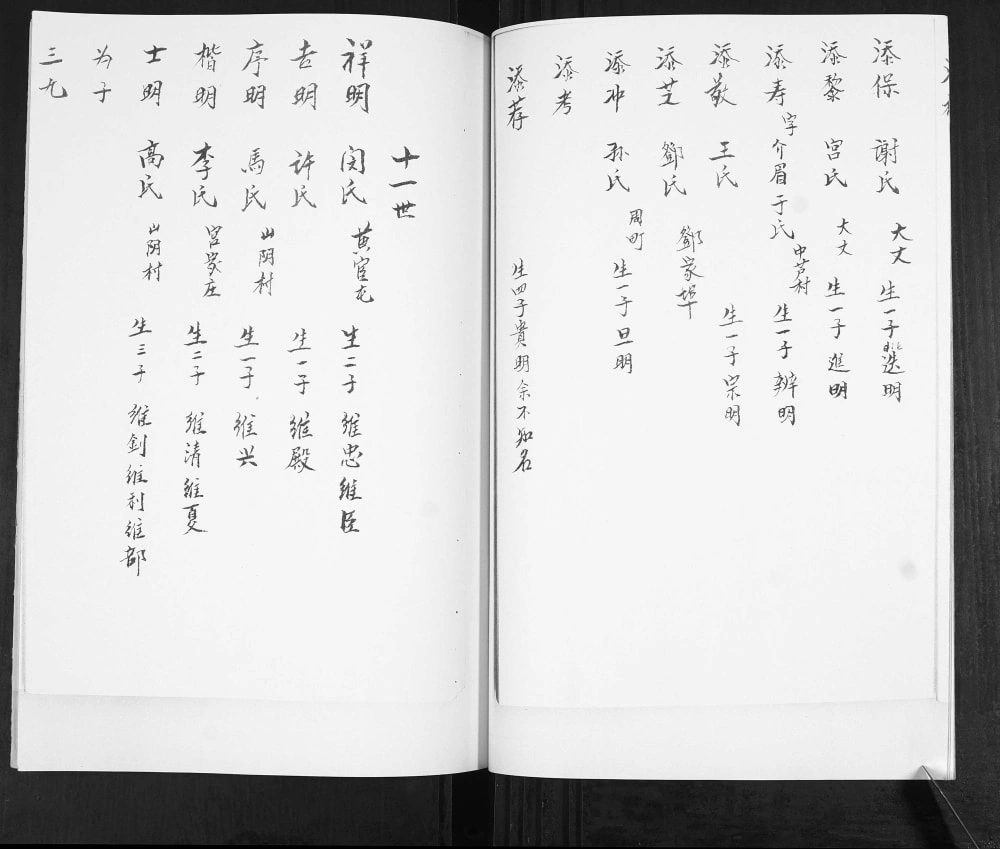 添保 谢氏 大丈 生一子選明
添黎 宫氏 大丈 生一子進明
添寿 字介眉 于氏 中芦村 生一子辨明
添敬 王氏 生一子宗明
添芝 鄧氏 鄧家埠
添冲 孙氏 周町 生一子旦明
添考
添荐 生四子貴明余不知名
十一世
祥明 闵氏 黄官屯 生二子 維忠維臣
吉明 许氏 生一子 維殿
序明 馬氏 山阴村 生一子 維兴
楷明 李氏 宫家庄 生二子 維清維夏
士明 高氏 山阴村 生三子 維釗維利維部
为子
三九